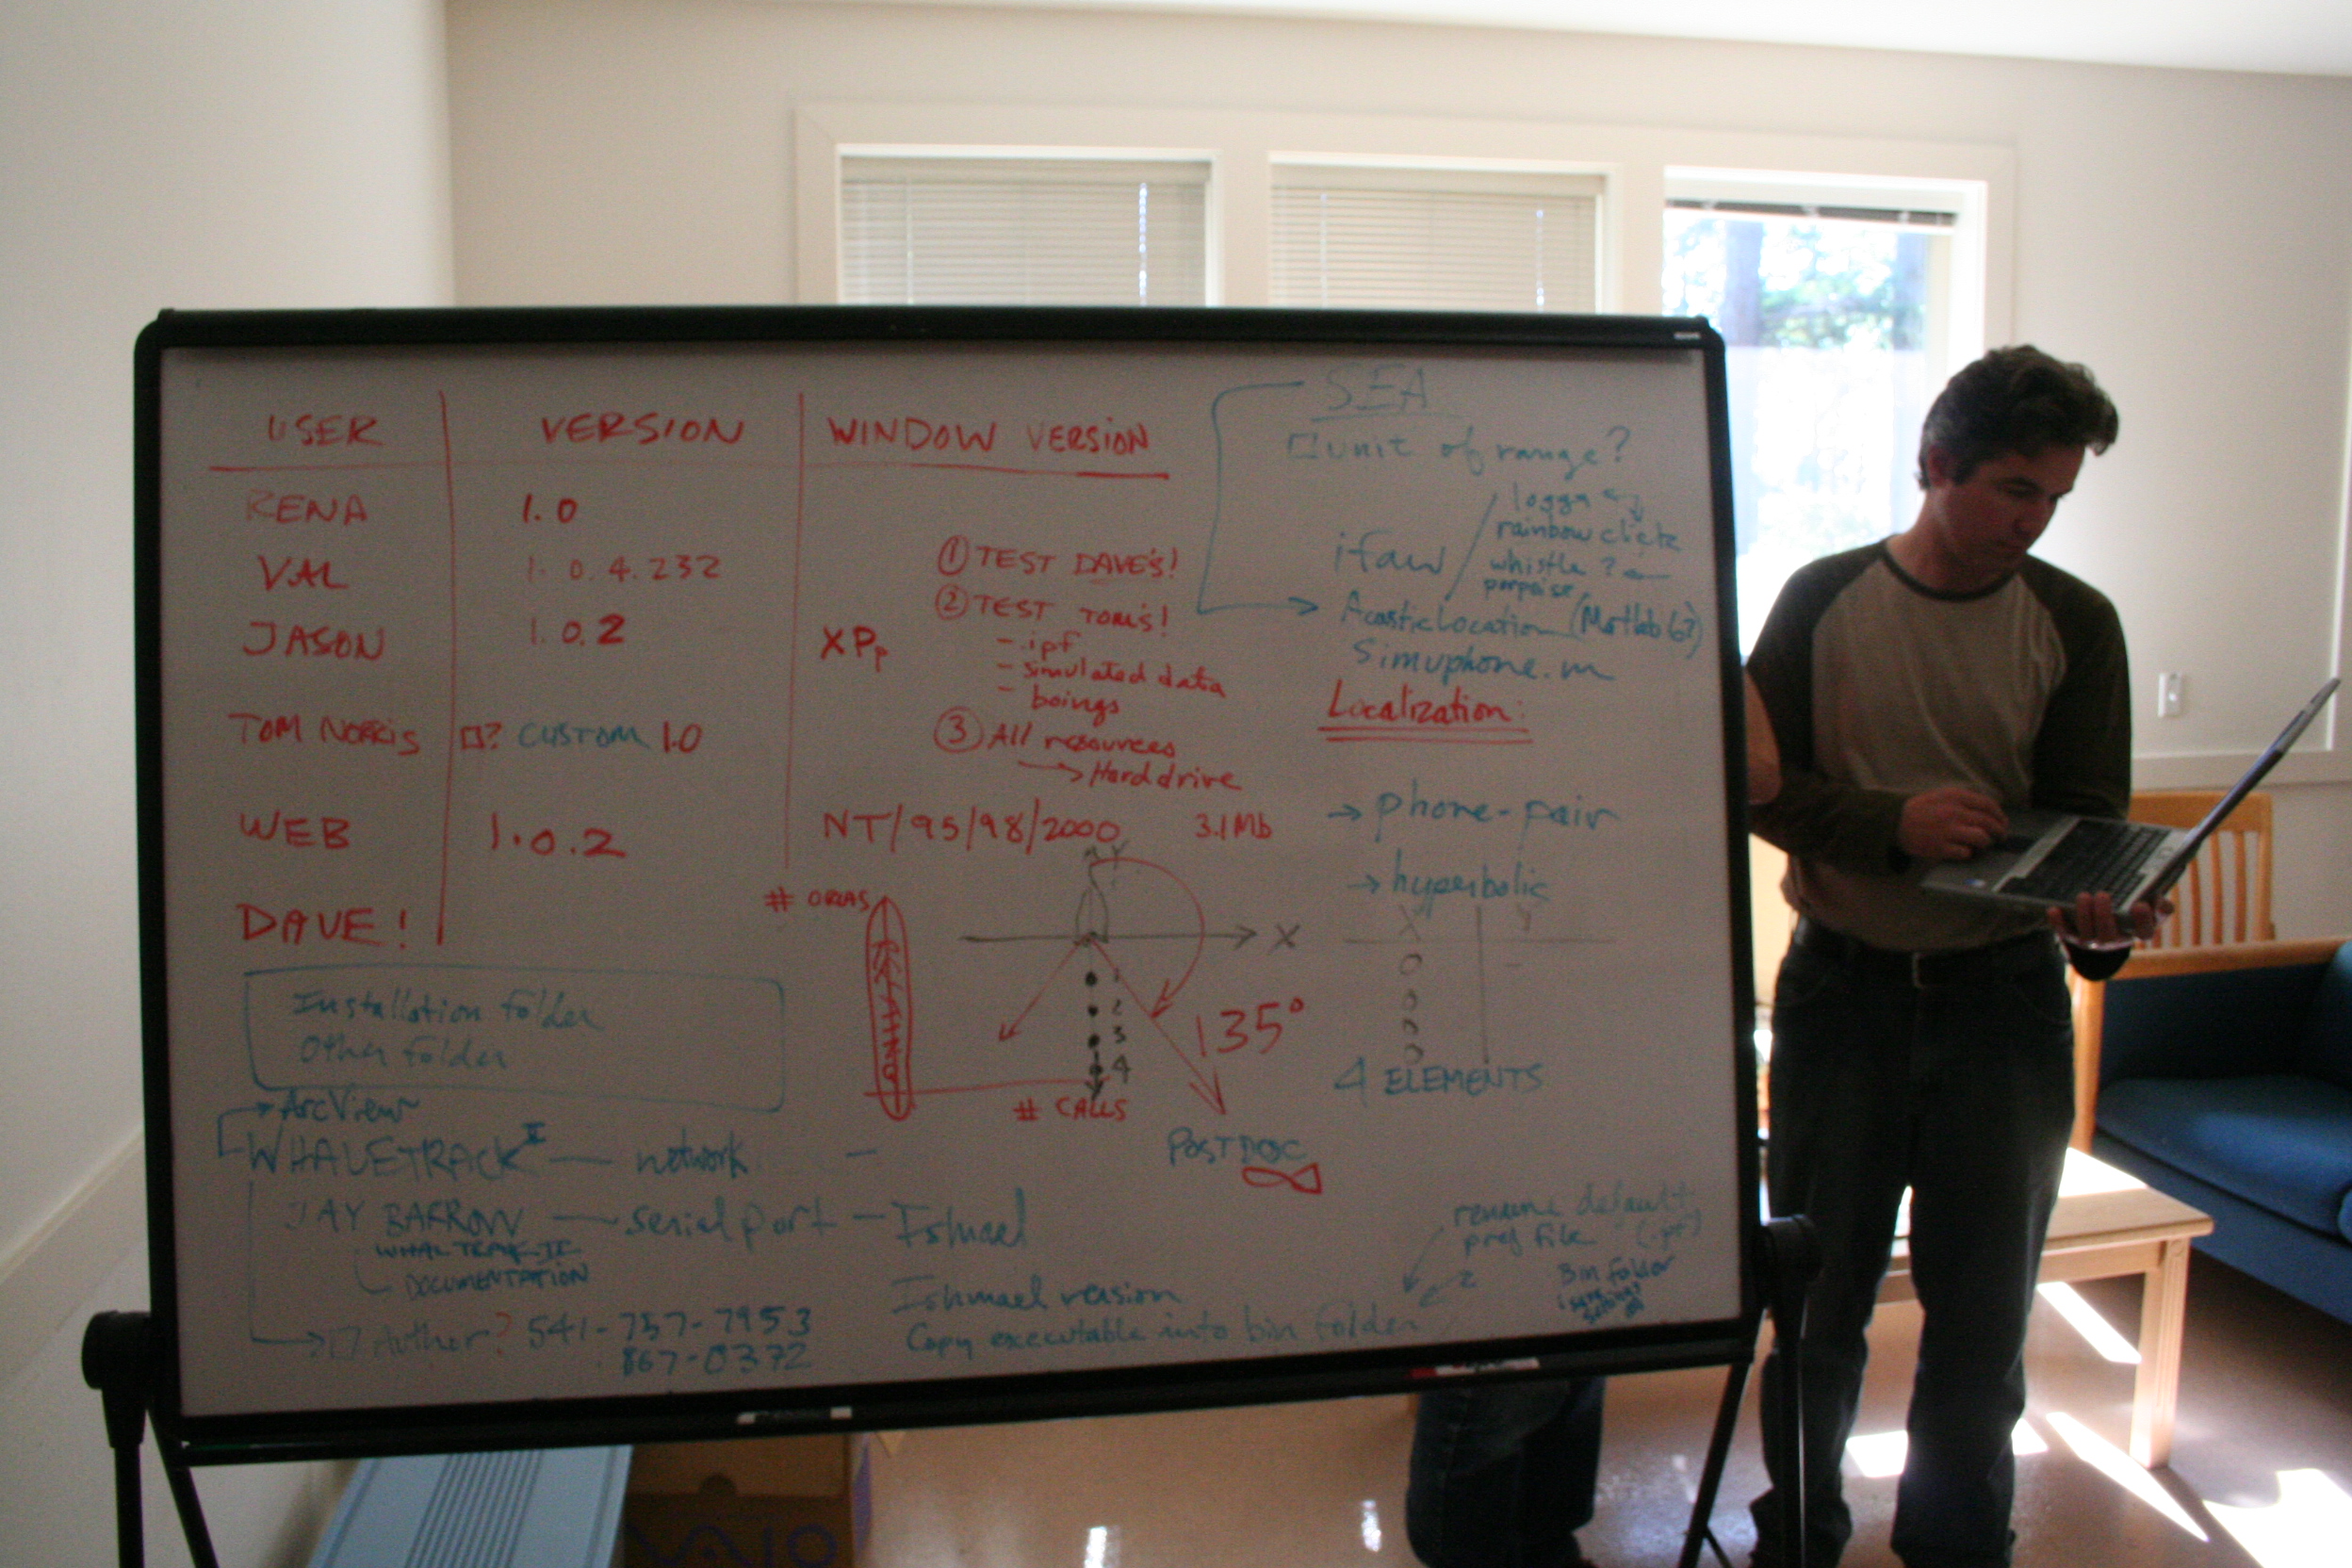 USER VERSION WINDOW VERSION
RENA 1.0
VAL 1.0.4.232
JASON 1.0.2 XPp
TOM NORRIS ? CUSTOM 1.0
WEB 1.0.2 NT/95/98/2000 3.1Mb
DAVE!
① TEST DAVE'S!
② TEST TOM'S!
- .ipf
- simulated data
- boings
③ All resources
→ Hard drive
SEA
unit of range?
ifaw
rainbow click
whistle ?
porpoise
AcousticLocation (Matlab 6?)
Simuphone.m
Localization:
→ phone-pair
→ hyperbolic
X Y
4 ELEMENTS
# ORCAS
Y
X
1
2
3
4
135°
# CALLS
POSTDOC
Installation folder
Other folder
→ ArcView
WHALETRACK II — network —
JAY BARROW — serial port — Ishmael
WHALTRAK II
DOCUMENTATION
→ Author? 541-757-7953
867-0372
Ishmael version
Copy executable into bin folder
rename default
pref file (.ipf)
2
Bin folder
VAIO